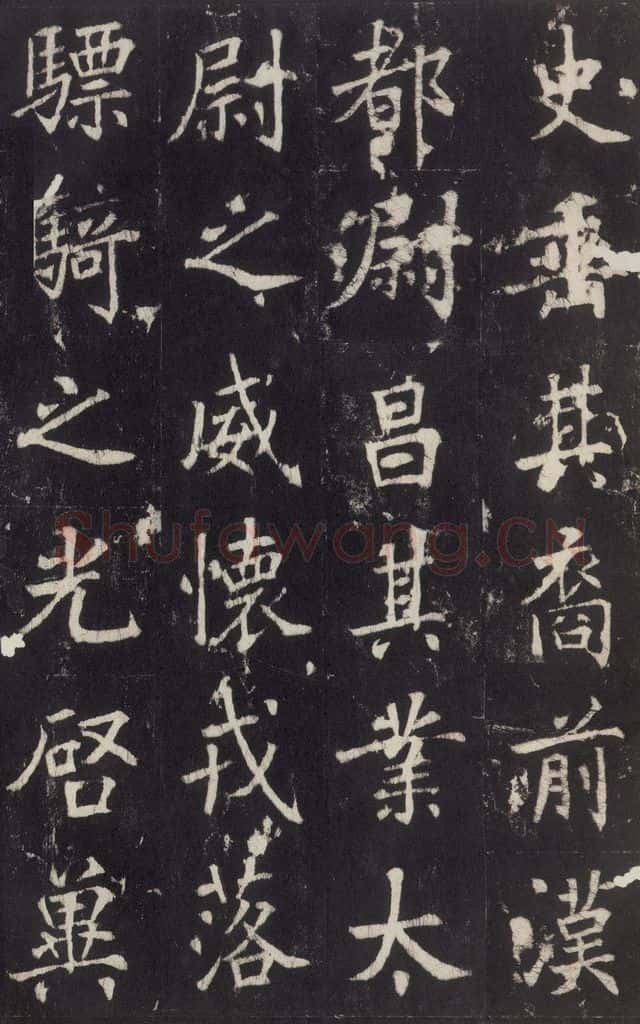 史垂其裔前漢
都尉昌其業太
尉之威懷戎落
驃騎之光啓冀
Shufawang.CN